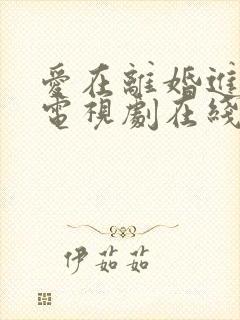 愛在離婚進
電視劇在綫
伊茹茹